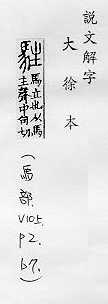 說文解字
大徐本
駐
馬立也从馬
主聲中句切
(馬部.
V10上.
P2.
b7.)